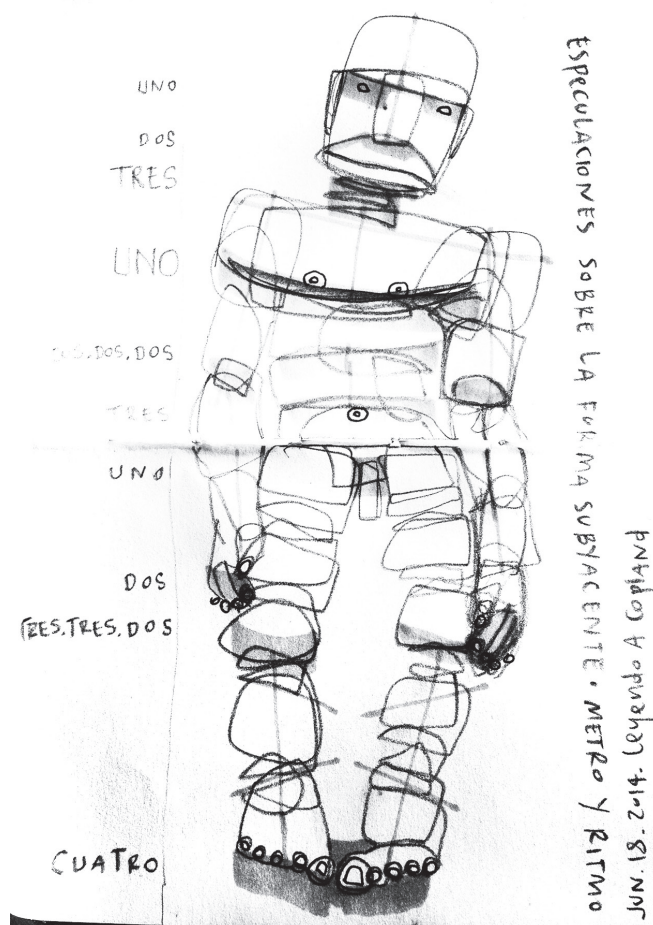 UNO
DOS
TRES
UNO
DOS.DOS.DOS
TRES
UNO
DOS
TRES.TRES.DOS
CUATRO
ESPECULACIONES SOBRE LA FORMA SUBYACENTE. METRO Y RITMO
JUN. 18. 2014. Leyendo A Copland